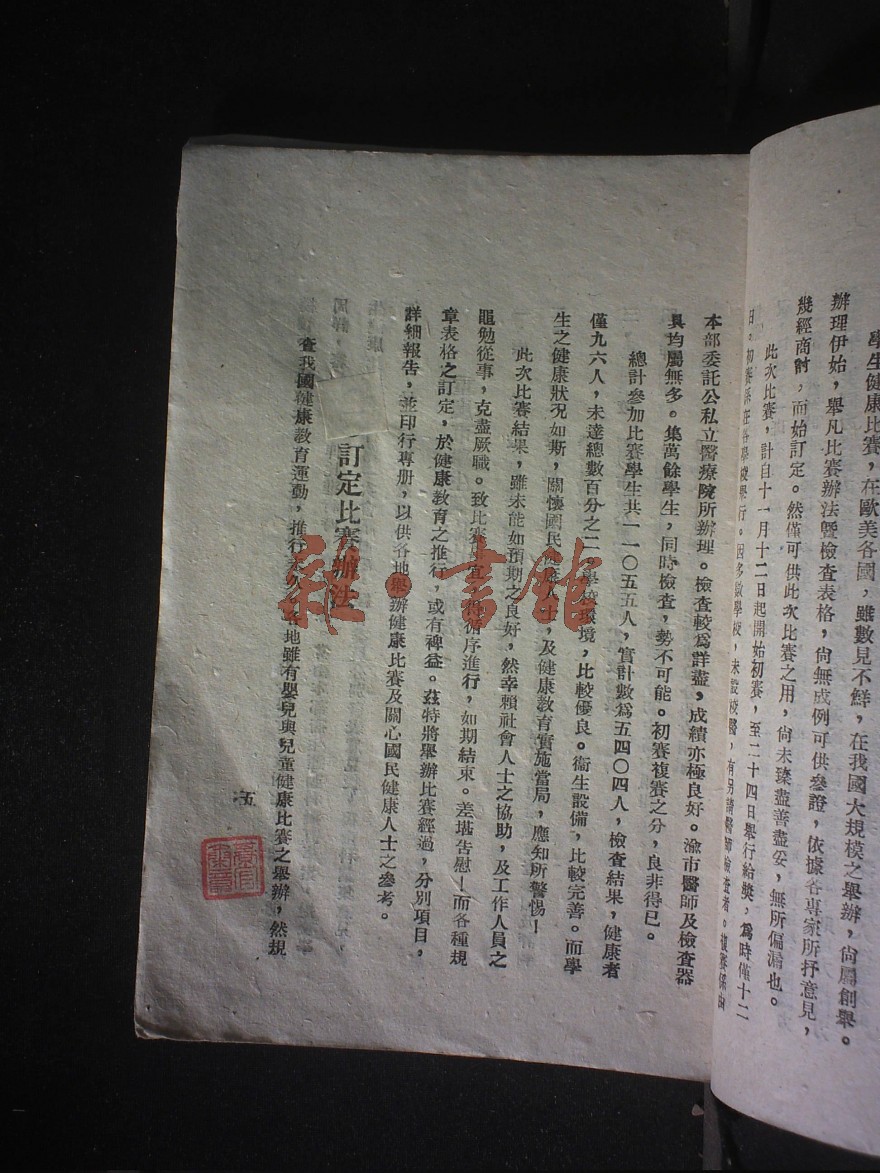 學生健康比賽，在歐美各國，雖數見不鮮，在我國大規模之舉辦，尙屬創舉。
辦理伊始，舉凡比賽辦法暨檢查表格，尙無成例可供參證，依據各專家所抒意見，
幾經商討，而始訂定。然僅可供此次比賽之用，尙未臻盡善盡妥，無所偏漏也。
此次比賽，計自十一月十二日起開始初賽，至二十四日舉行給獎，爲時僅十二
日。初賽係在各學校舉行。因多數學校，未設校醫，有另請醫師檢查者。複賽係由
本部委託公私立醫療院所辦理。檢查較爲詳盡，成績亦極良好。渝市醫師及檢查器
具均屬無多。集萬餘學生，同時檢查，勢不可能。初賽複賽之分，良非得已。
總計參加比賽學生共一一〇五五人，實計數爲五四〇四人，檢查結果，健康者
僅九六人，未達總數百分之二。學校環境，比較優良。衞生設備，比較完善。而學
生之健康狀況如斯，關懷國民健康人士，及健康教育實施當局，應知所警惕！
此次比賽結果，雖未能如預期之良好，然幸賴社會人士之協助，及工作人員之
黽勉從事，克盡厥職。致比賽事宜，得循序進行，如期結束。差堪告慰！而各種規
章表格之訂定，於健康教育之推行，或有裨益。茲特將舉辦比賽經過，分別項目，
詳細報告，並印行專册，以供各地舉辦健康比賽及關心國民健康人士之參考。
訂定比賽辦法
查我國健康教育運動，推行 各地雖有嬰兒與兒童健康比賽之舉辦，然規
五
雜·書館